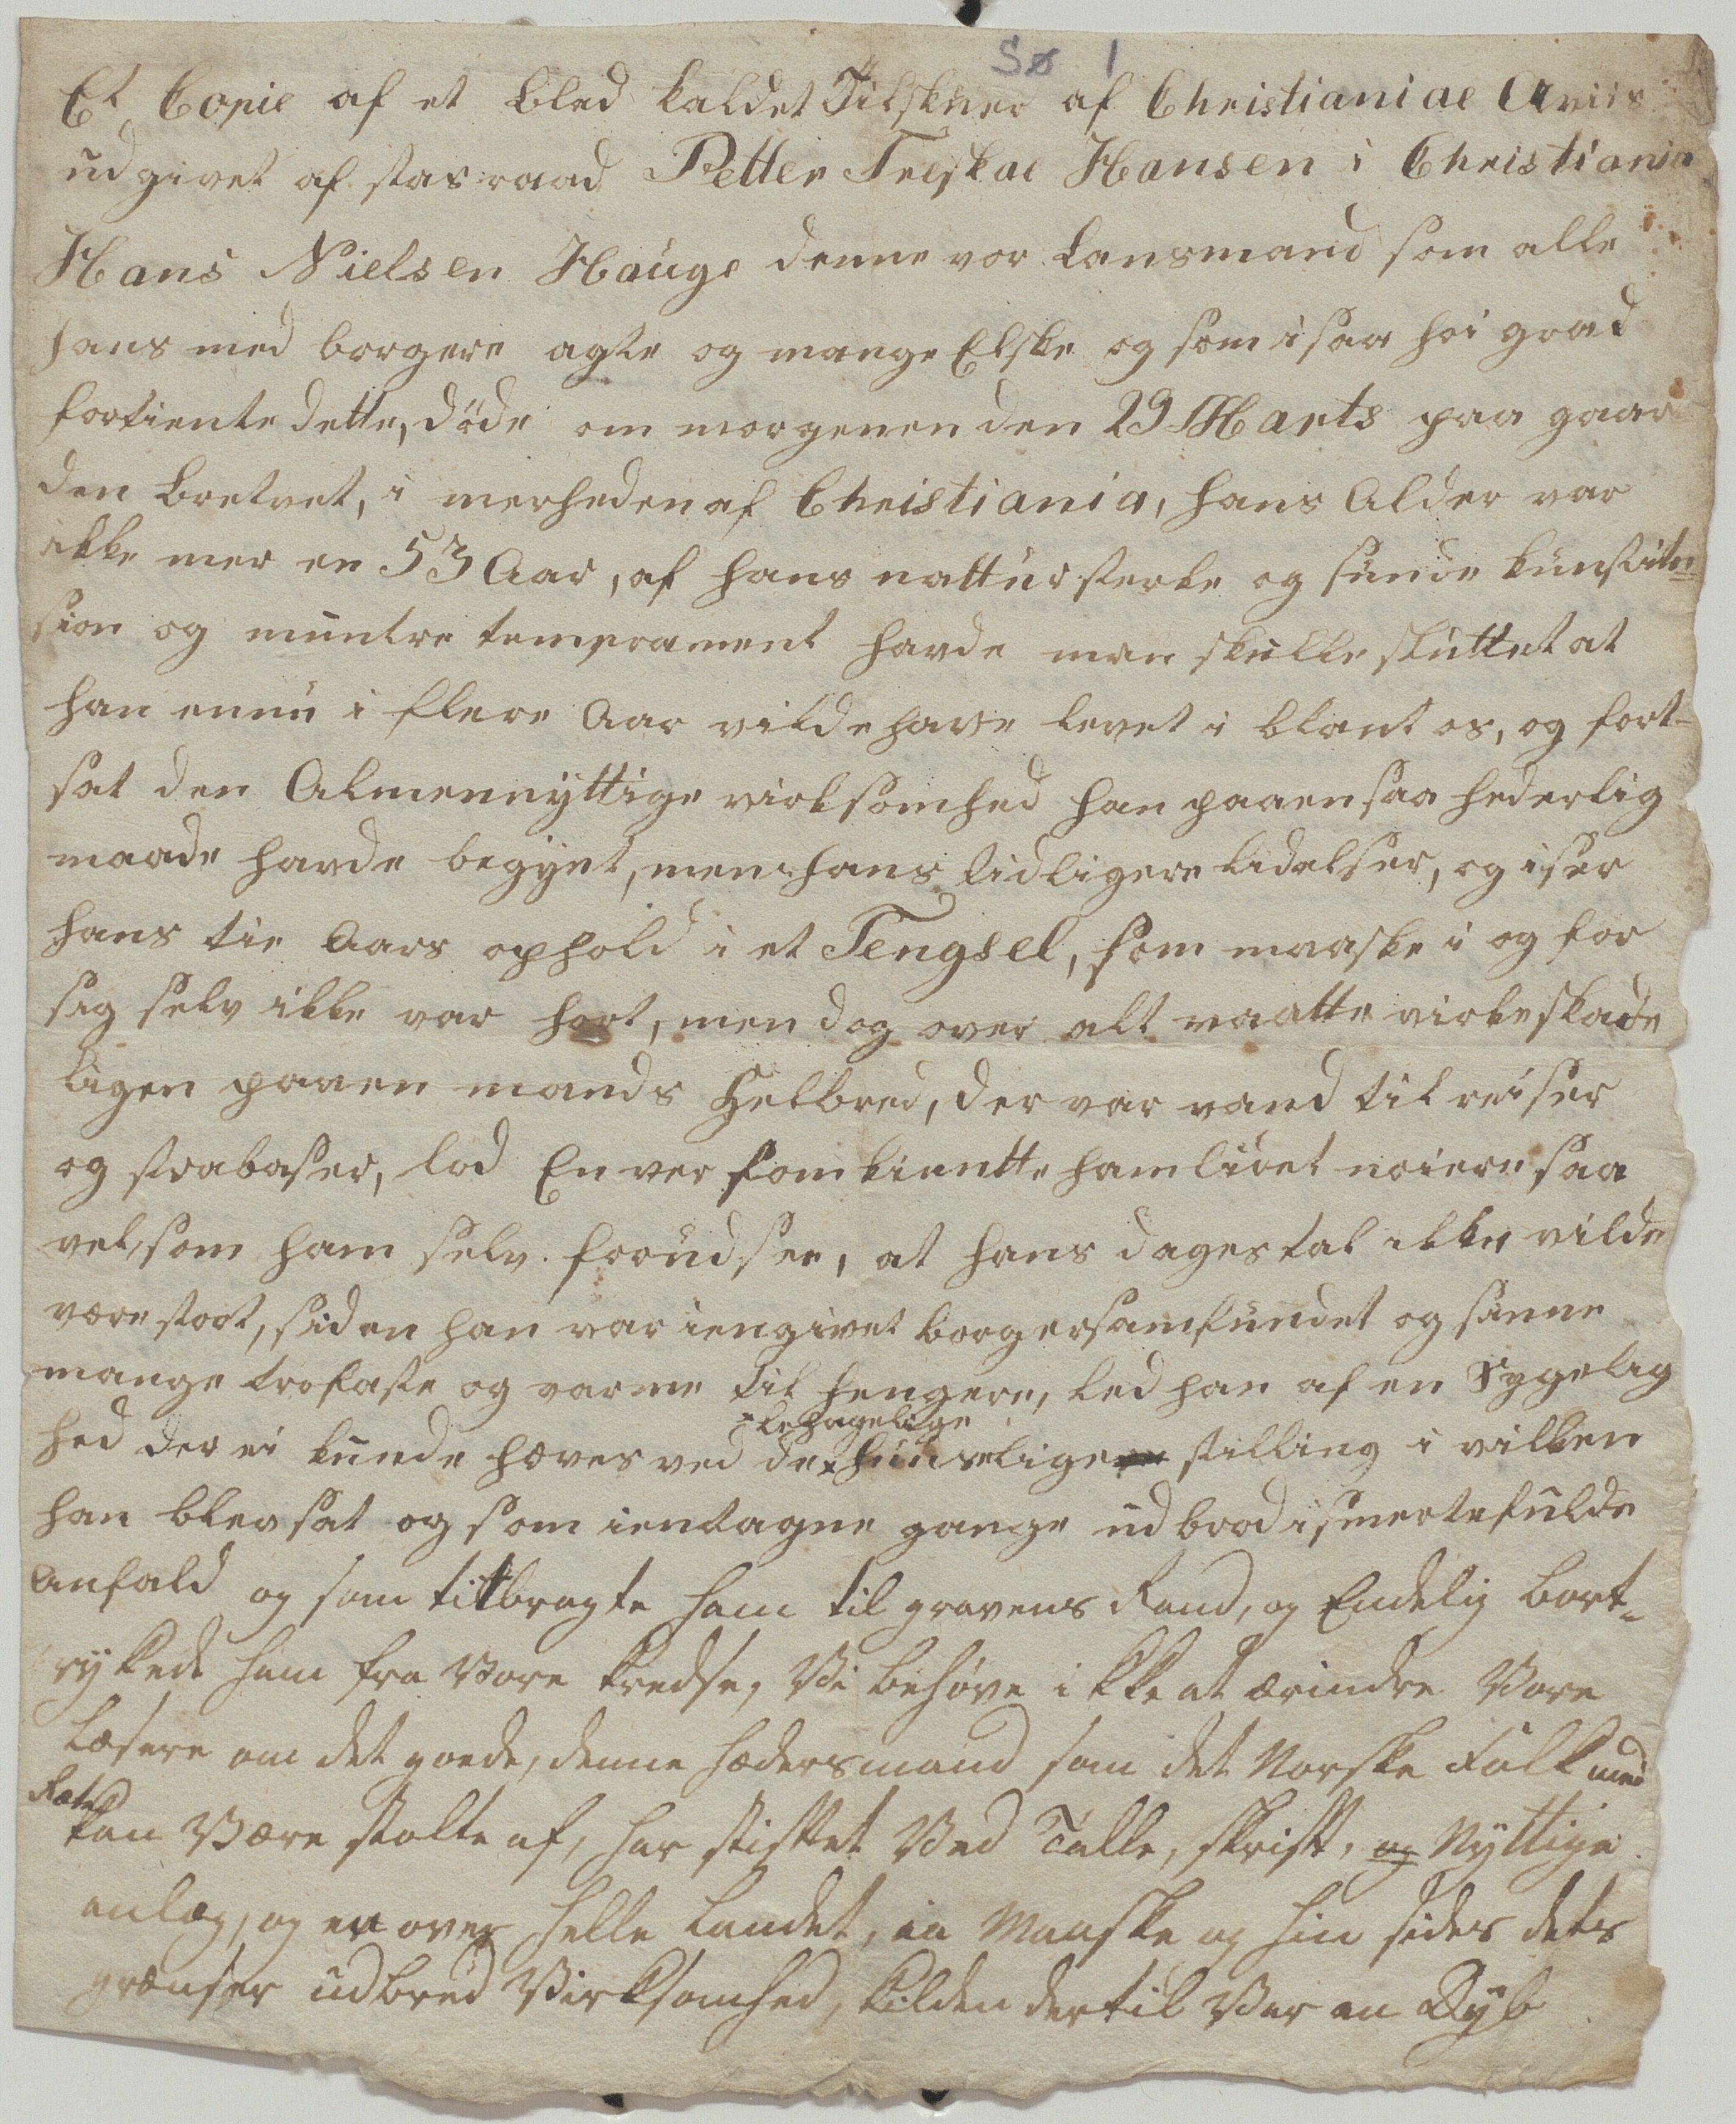 Sø 1
Et Copie af et blad kaldet Tilskuer af Christianiae Aviis
udgivet af stasraad Petter Treskae Hansen i Christiania
Hans Nielsen Hauge denne vor Lansmand som alle
hans med borgere agte og mange Elske og som i saa høi grad
fortiente dette, døde om morgenen den 29 Marts paa gaar
den Bretvet, i nerheden af Christiania, hans Alder var
ikke mer en 53 Aar, af hans nattur sterke og sunde kunstitu=
sion og muntre temprament havde man skulle sluttet at
han ennu i flere Aar vilde have levet i blant os, og fort-
sat den Almennyttige virksomhed han paa en saa hederlig
maade havde begynt, men hans tidligere lidelser, og iser
hans tie Aars ophold i et Fengsel, som maaske i og for
sig selv ikke var hort, men dog over alt maatte virke skade
ligen paa en mands Helbred, der var vand til reiser
og strabaser, lod En ver som kientte ham lidet noiere saa
vel som ham selv forudsee, at hans dages tal ikke vilde
være stort, siden han var iengivet borgersamfundet og sinne
mange trofaste og varme til hengere, led han af en Sygelig
hed der ei kunde hæves ved de behagelige huuslige stilling i vilken
han blev sat og som ientagne gange udbrød i smertefulde
Anfald og som tit bragte ham til gravens Rand, og Endelig bort=
rykede ham fra Vore kredse, Vi behøve ikke at ærindre Vore
Læsere om det goede, denne hædersmand som det Norske Folk med
Rætt
kan Være stolte af, har stiftet Ved Talle, skrift, og Nyttige
anlæg, og en over helle Landet, ia Maaske og hin sides dets
grænser udbred Virksomhed, kilden dertil Var en Dyb